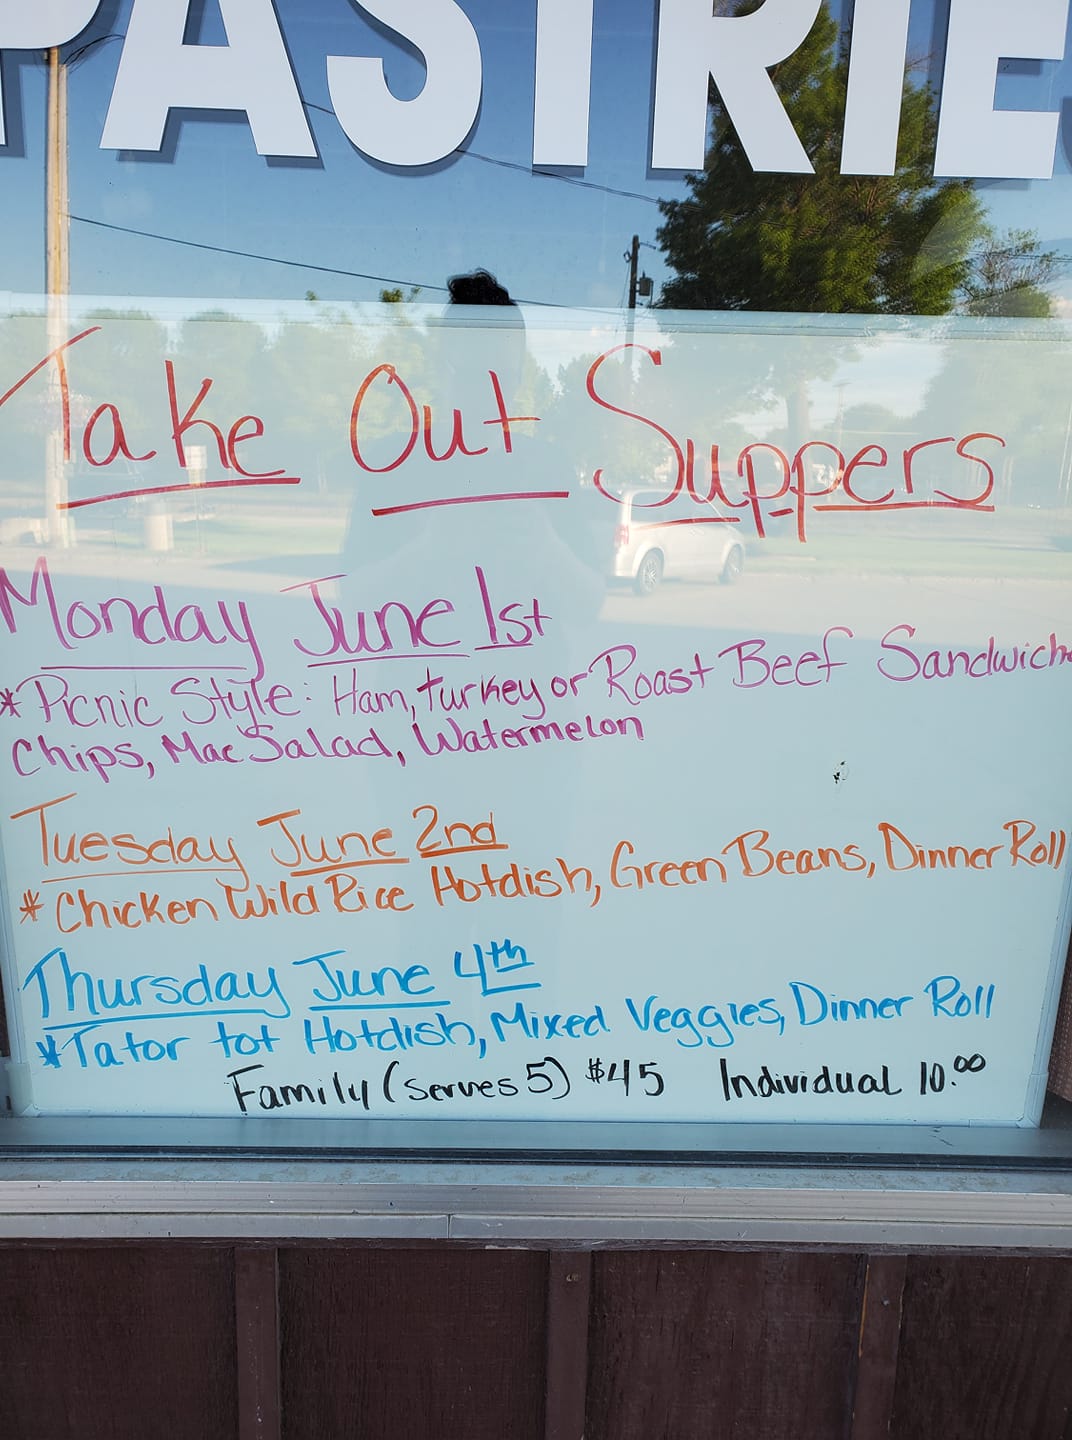 PASTRIES
Take Out Suppers
Monday June 1st
* Picnic Style: Ham, turkey or Roast Beef Sandwich
Chips, Mac Salad, Watermelon
Tuesday June 2nd
* Chicken Wild Rice Hotdish, Green Beans, Dinner Roll
Thursday June 4th
* Tator tot Hotdish, Mixed Veggies, Dinner Roll
Family (serves 5) $45 Individual 10.00